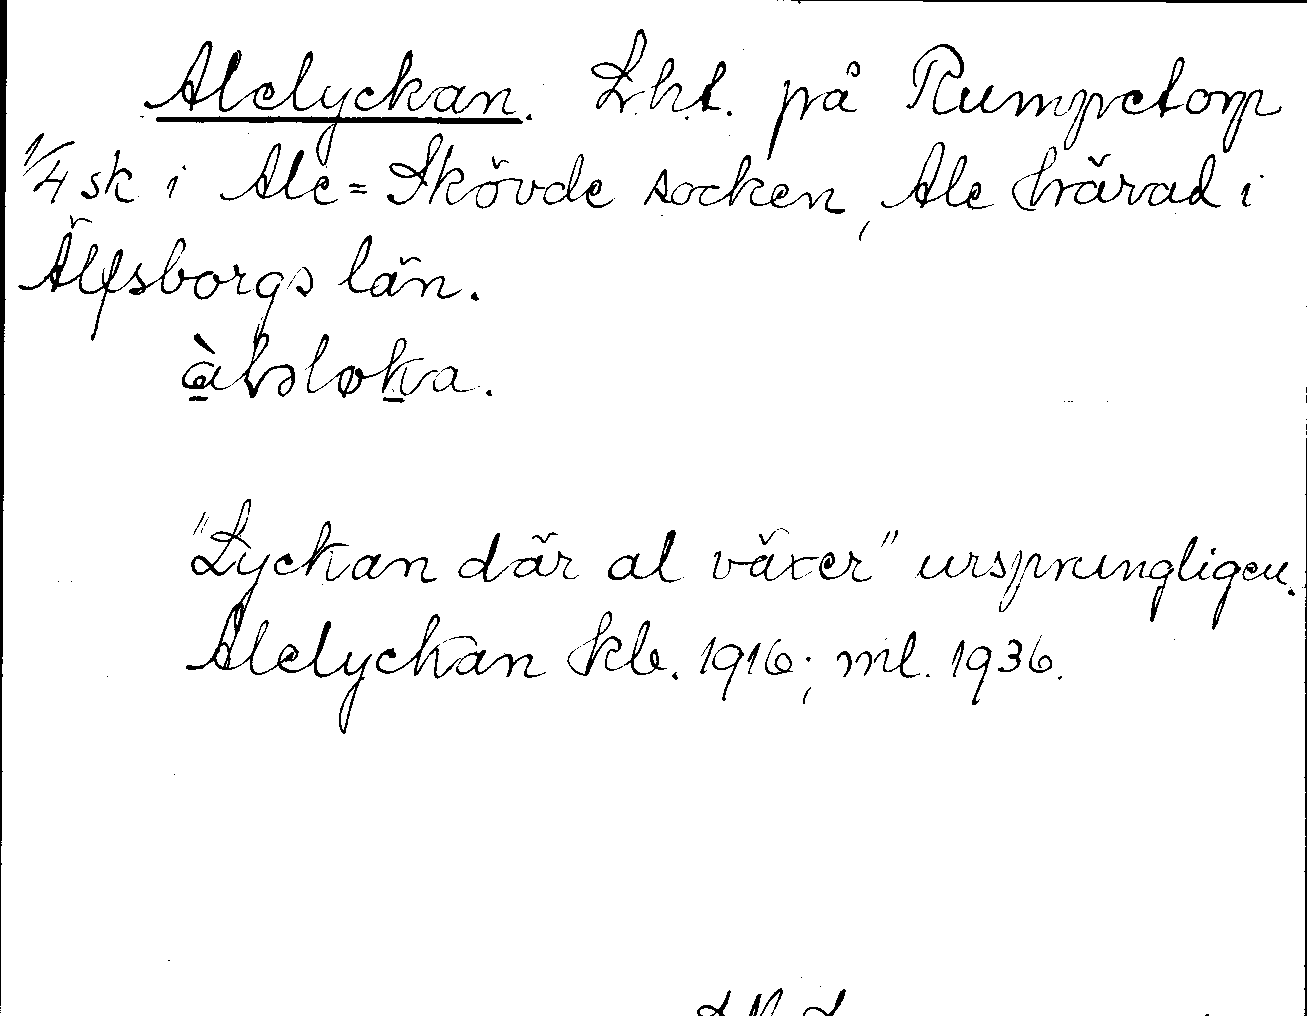 Alelyckan. Lht. på Rumpetorp
1/4 sk i Ale=Skövde socken, Ale härad i
Älfsborgs län.
"Lyckan där al växer" ursprungligen.
Alelyckan Skb. 1916; ml. 1936.